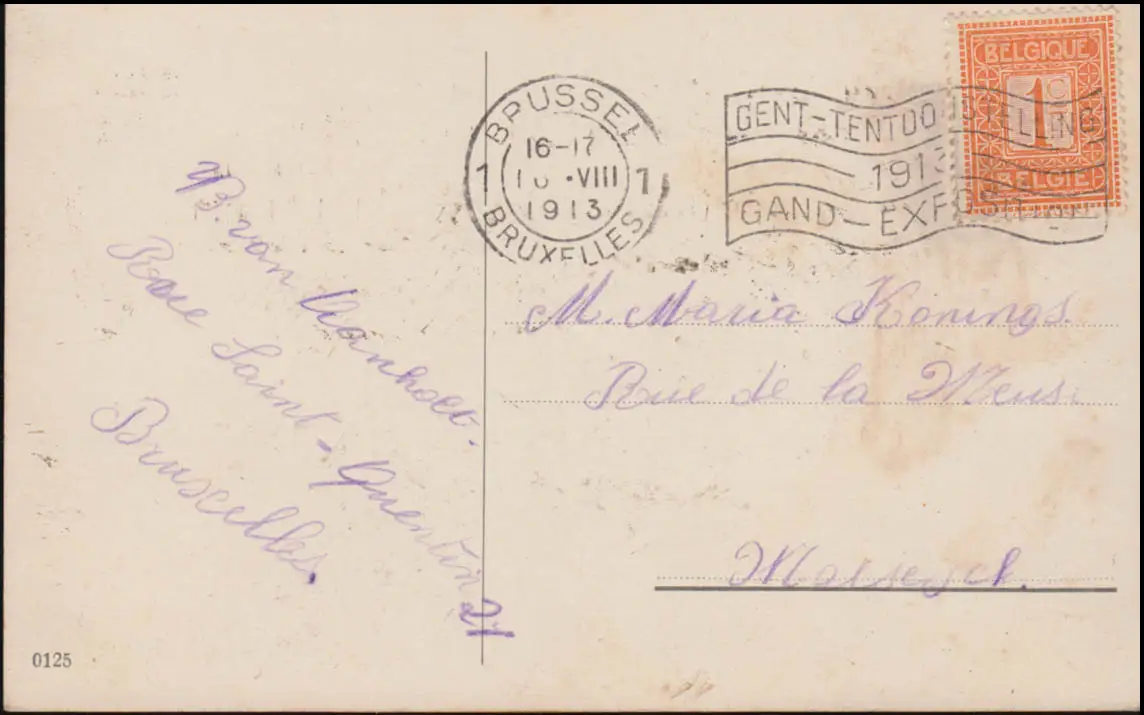 BRUSSEL
1 1
16-17
VIII
1913
BRUXELLES
GENT-TENTOO LLING
1913
GAND-EXPOSITION
BELGIQUE
1c
BELGIE
B. van
Rue Saint-Quentin 21
Bruxcelles.
M. Maria Konings.
Rue de la Meus.
Maeseyck.
0125